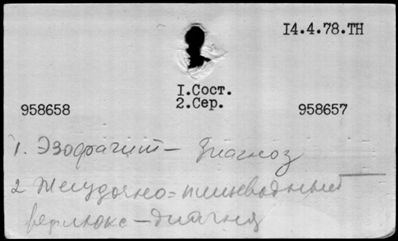 14.4.78.ТН
1.Сост.
2.Сер.
958658 958657
1. Эзофагит — диагноз
2 Желудочно-пищеводный
рефлюкс — диагноз